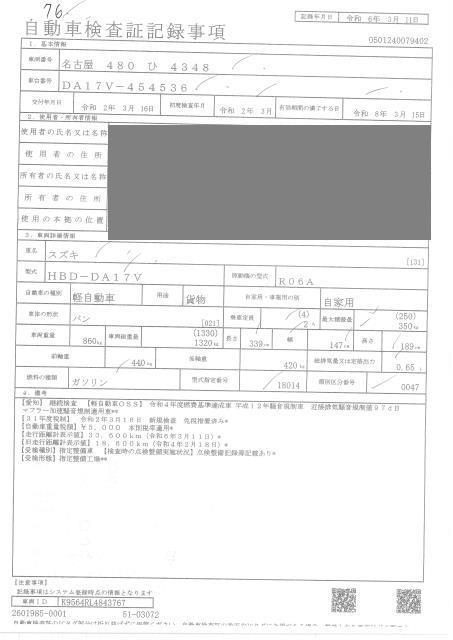 76.
自動車検査証記録事項
記録年月日 令和 6年 3月 11日
0501240079402
1. 基本情報
車両番号 名古屋 480 ひ 4348
車台番号 DA17V-454536
交付年月日 令和 2年 3月 16日 初度検査年月 令和 2年 3月 有効期間の満了する日 令和 8年 3月 15日
2. 使用者・所有者情報
使用者の氏名又は名称
使用者の住所
所有者の氏名又は名称
所有者の住所
使用の本拠の位置
3. 車両詳細情報
車名 スズキ [131]
型式 HBD-DA17V 原動機の型式 R06A
自動車の種別 軽自動車 用途 貨物 自家用・事業用の別 自家用
車体の形状 バン [021] 乗車定員 (4) 2人 最大積載量 (250) 350kg
車両重量 860kg 車両総重量 (1330) 1320kg 長さ 339cm 幅 147cm 高さ 189cm
前軸重 440kg 後軸重 420kg 総排気量又は定格出力 0.65 L
燃料の種類 ガソリン 型式指定番号 18014 類別区分番号 0047
4. 備考
【愛知】 継続検査 【軽自動車OSS】 令和4年度燃費基準達成車 平成12年騒音規制車 近接排気騒音規制値97dB
マフラー加速騒音規制適用車**
【31年度税制】 令和2年3月16日 新規検査 免税措置済み*
【自動車重量税額】¥5,000 本則税率適用*
【走行距離計表示値】33,600km(令和6年3月11日)*
【旧走行距離計表示値】18,600km(令和4年2月18日)*
【受検種別】指定整備車 【検査時の点検整備実施状況】点検整備記録簿記載あり*
【受検形態】指定整備工場**
【注意事項】
記録事項はシステム登録時点の情報となります
車両ID K9564RL4843767
2601985-0001 51-03072